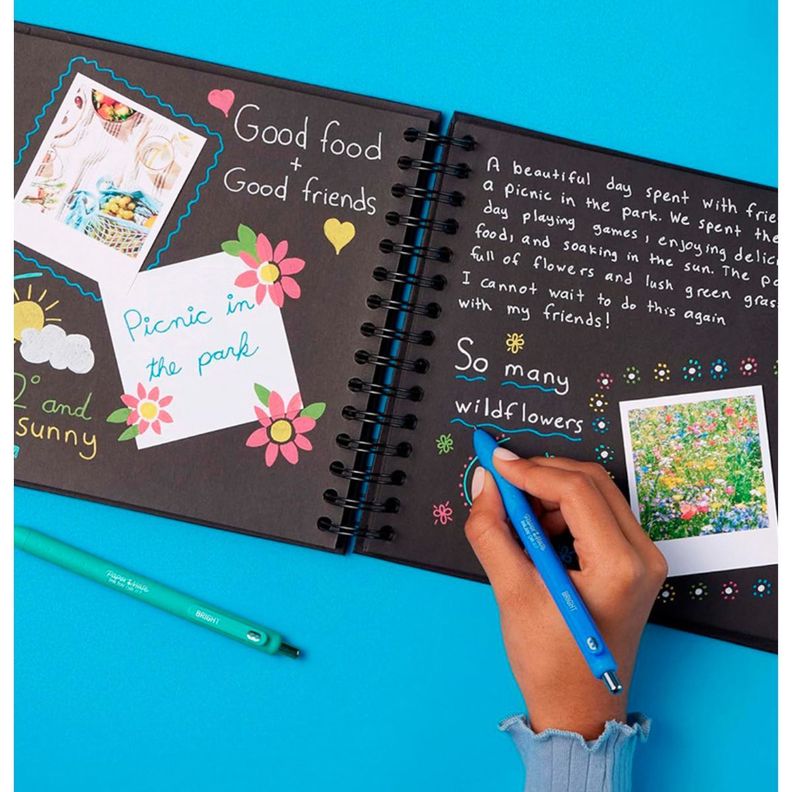 Good food
+
Good friends
Picnic in
the park
° and
sunny
A beautiful day spent with
a picnic in the park. We spent the
day playing games, enjoying
food, and soaking in the sun. The
full of flowers and lush green
I cannot wait to do this again
with my friends!
So many
wildflowers
Paper Mate
INKJOY
BRIGHT
Paper Mate
INKJOY
BRIGHT